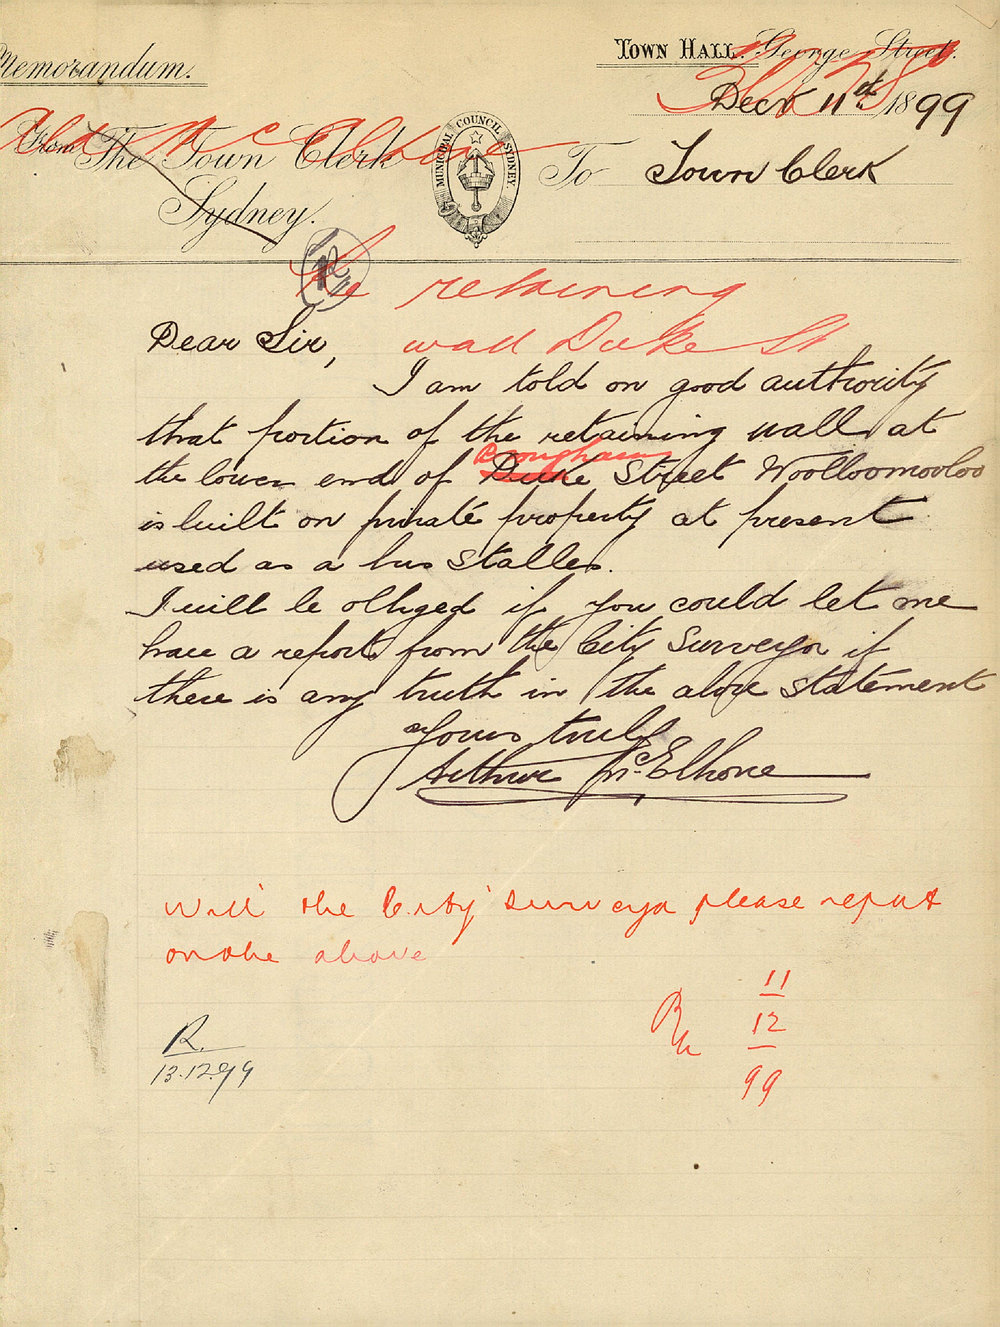 Memorandum.
TOWN HALL. George Street.
Decr 11th 1899
From The Town Clerk
Ald McElhone
Sydney.
MUNICIPAL COUNCIL SYDNEY.
To Town Clerk
Re retaining
wall Duke St
Dear Sir,
I am told on good authority
that portion of the retaining wall at
Brougham
the lower end of Duke Street Woolloomooloo
is built on private property at present
used as a bus stables.
I will be obliged if you could let me
have a report from the City Surveyor if
there is any truth in the above statement
Yours truly
Arthur McElhone
Will the City Surveyor please report
on the above
11
12
99
R.
13.12.99